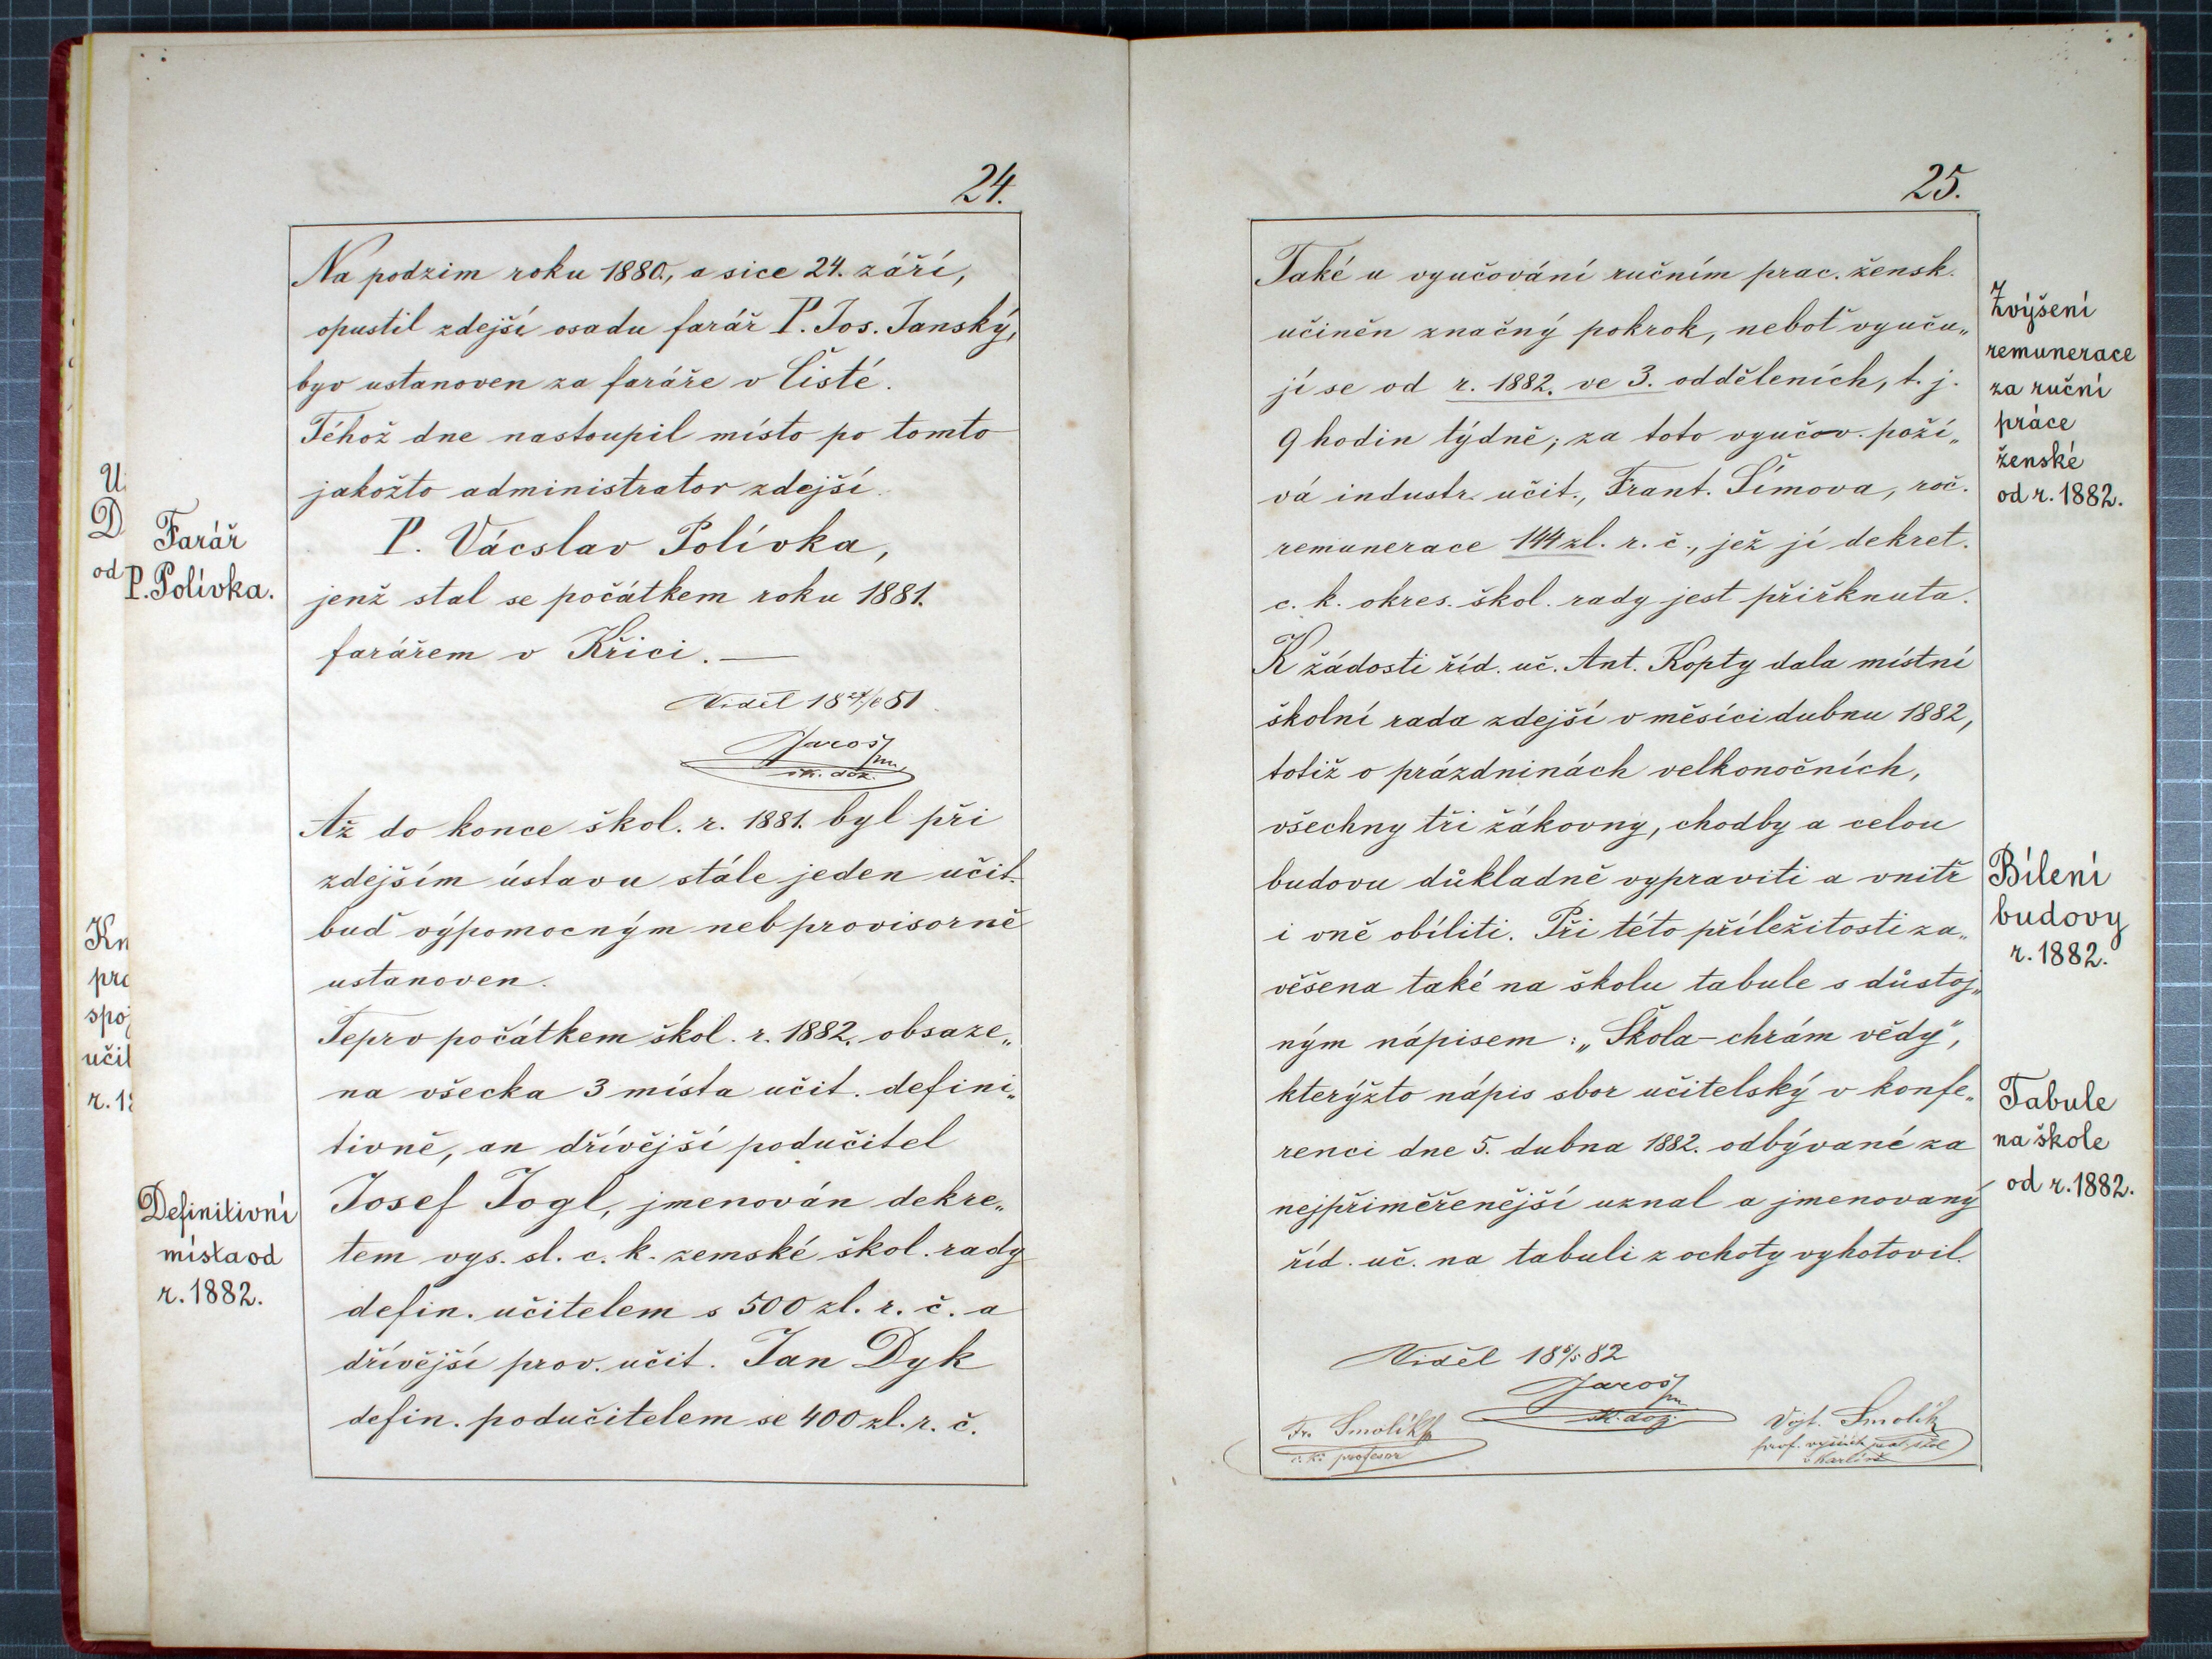 24.
Na podzim roku 1880., a sice 24. září,
opustil zdejší osadu farář P. Jos. Janský,
byv ustanoven za faráře v Čisté.
Téhož dne nastoupil místo po tomto
jakožto administrator zdejší
P. Vácslav Polívka,
jenž stal se počátkem roku 1881.
farářem v Křici. —
Viděl 18 81
Jaroš
šk. doz.
Až do konce škol. r. 1881. byl při
zdejším ústavu stále jeden učit.
buď výpomocným neb provisorně
ustanoven.
Teprv počátkem škol. r. 1882. obsaze„
na všecka 3 místa učit. defini„
tivně, an dřívější podučitel
Josef Jogl, jmenován dekre„
tem vys. sl. c. k. zemské škol. rady
defin. učitelem s 500 zl. r. č. a
dřívější prov. učit. Jan Dyk
defin. podučitelem se 400 zl. r. č.
Farář
P. Polívka.
Definitivní
místa od
r. 1882.
U
D
od
Kn
pro
spoj
učit
r. 18
25.
Také u vyučování ručním prac. žensk.
učiněn značný pokrok, neboť vyuču„
jí se od r. 1882. ve 3. odděleních, t. j.
9 hodin týdně; za toto vyučov. poží„
vá industr. učit., Frant. Šímova, roč.
remunerace 144 zl. r. č., jež jí dekret.
c. k. okres. škol. rady jest přiřknuta.
K žádosti říd. uč. Ant. Kopty dala místní
školní rada zdejší v měsíci dubnu 1882,
totiž o prázdninách velkonočních,
všechny tři žákovny, chodby a celou
budovu důkladně vypraviti a vnitř
i vně obíliti. Při této příležitosti za„
věšena také na školu tabule s důstoj„
ným nápisem: „Škola – chrám vědy“,
kterýžto nápis sbor učitelský v konfe„
renci dne 5. dubna 1882. odbývané za
nejpřiměřenější uznal a jmenovaný
říd. uč. na tabuli z ochoty vyhotovil.
Viděl 18 5/5 82
Jaroš
šk. doz.
Fr. Smolík
c. k. profesor
Vojt. Smolík
prof.
v Karlíně
Zvýšení
remunerace
za ruční
práce
ženské
od r. 1882.
Bílení
budovy
r. 1882.
Tabule
na škole
od r. 1882.